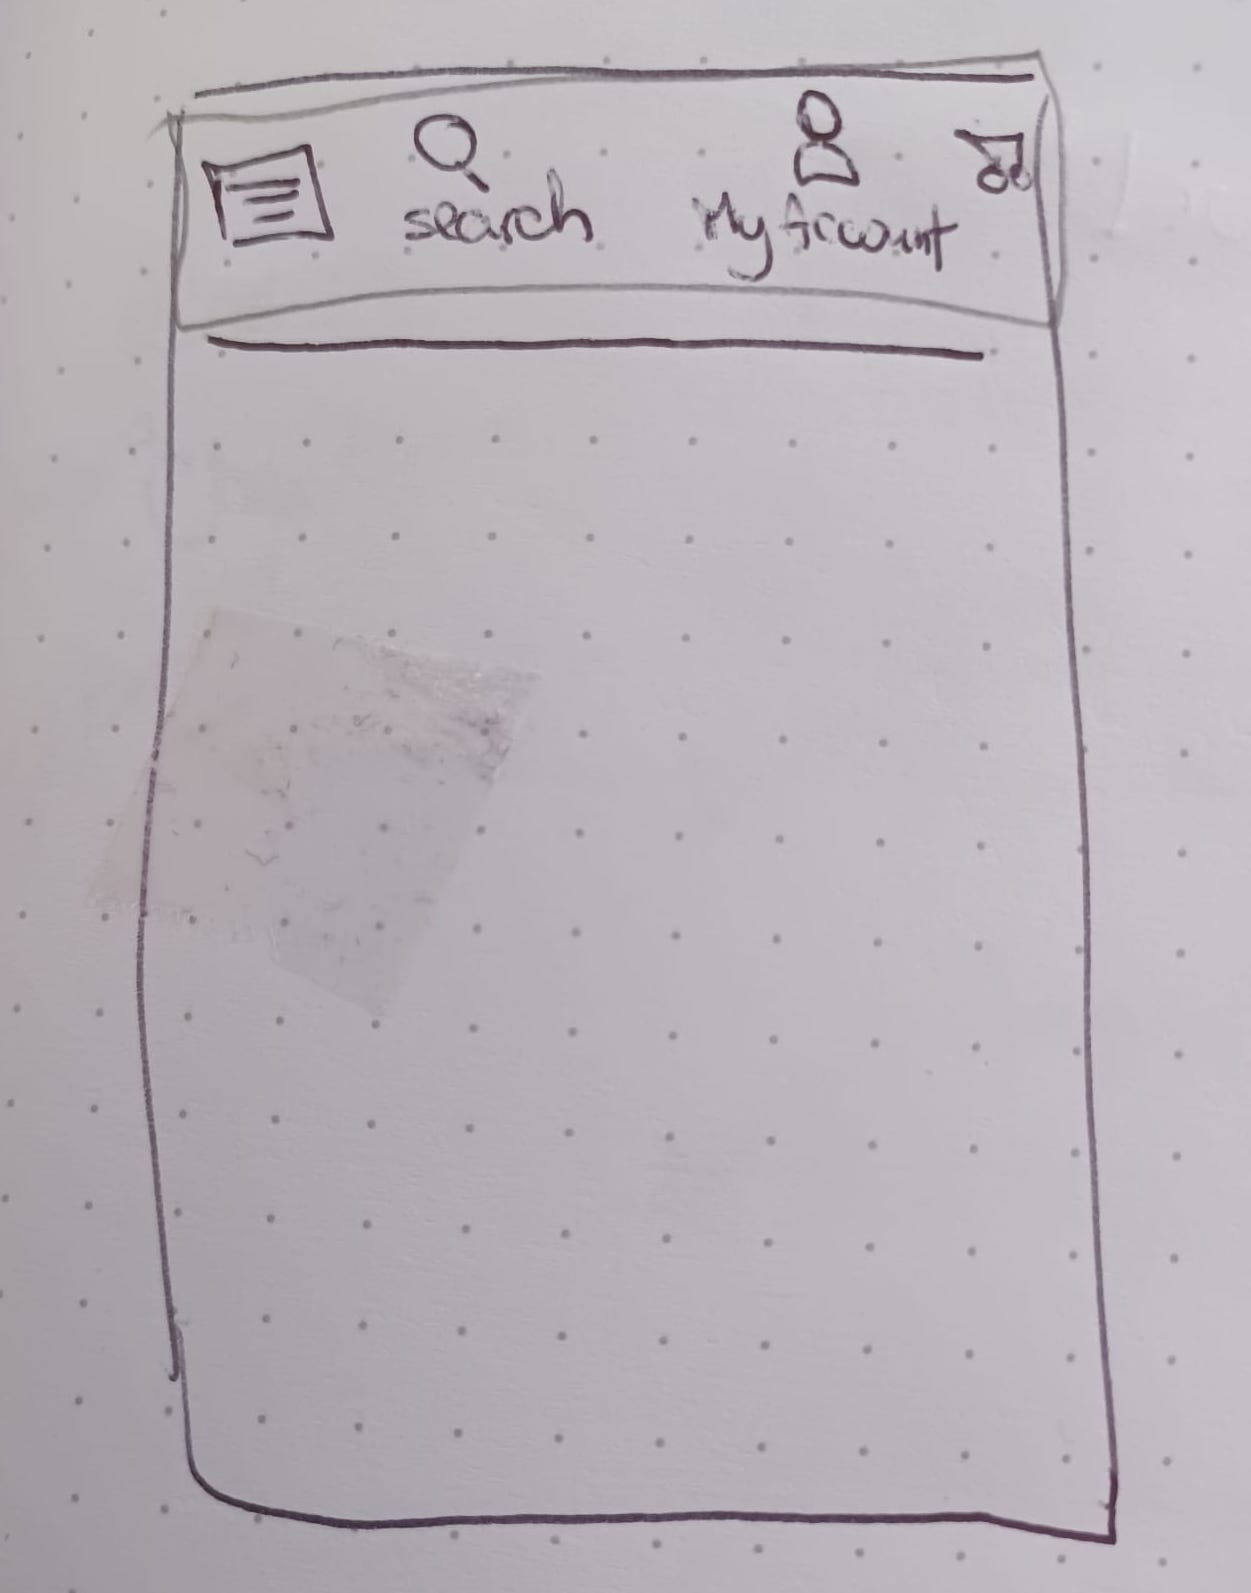 search
My Account